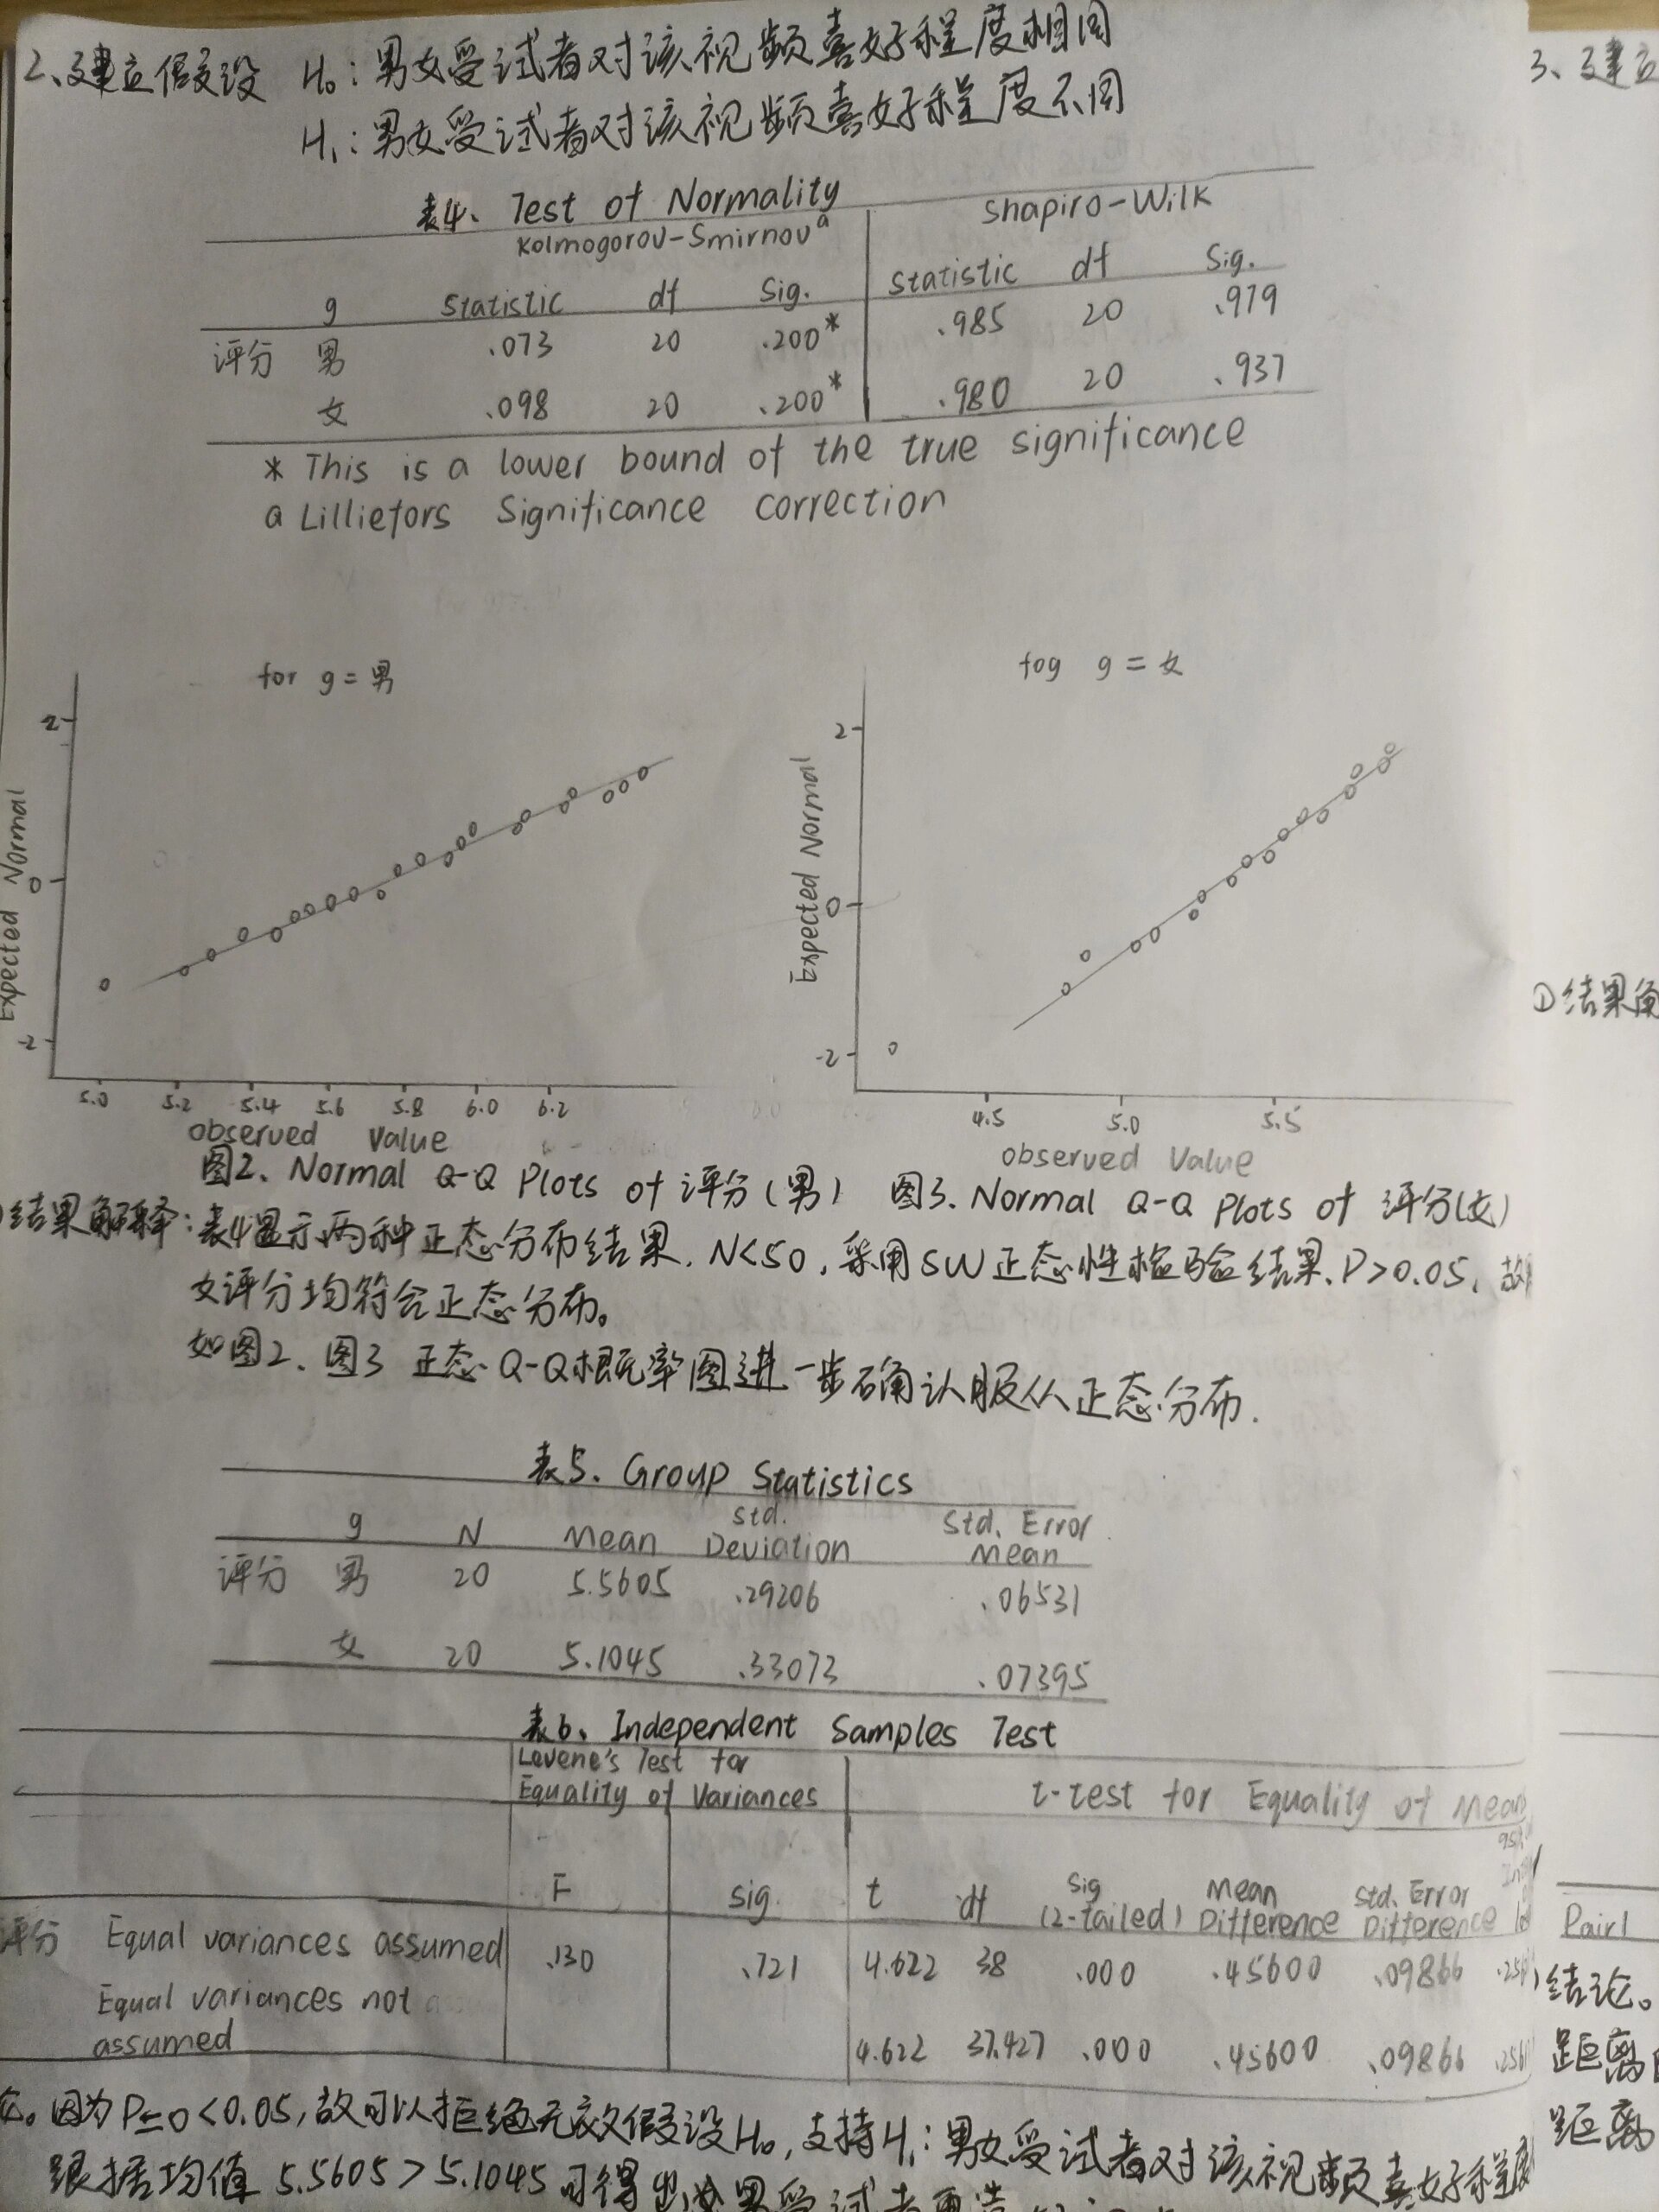 2、建立假设 H₀：男女受试者对该视频喜好程度相同
3、建立
H₁：男女受试者对该视频喜好程度不同
表4、Test of Normality
Kolmogorov-Smirnovᵃ Shapiro-Wilk
g Statistic df Sig. Statistic df Sig.
评分 男 .073 20 .200* .985 20 .979
女 .098 20 .200* .980 20 .937
* This is a lower bound of the true significance
a Lilliefors Significance correction
for g = 男 fog g = 女
2 2
Expected Normal Expected Normal
0 0
-2 -2
5.0 5.2 5.4 5.6 5.8 6.0 6.2 4.5 5.0 5.5
observed Value observed Value
图2、Normal Q-Q Plots of 评分(男) 图3、Normal Q-Q Plots of 评分(女)
①结果解
结果解释：表4显示两种正态分布结果，N<50，采用SW正态性检验结果、P>0.05，故
女评分均符合正态分布。
如图2、图3 正态Q-Q概率图进一步确认服从正态分布.
表5、Group Statistics
g N Mean Std. Deviation Std. Error Mean
评分 男 20 5.5605 .29206 .06531
女 20 5.1045 .33073 .07395
表6、Independent Samples Test
Levene's Test for Equality of Variances t-test for Equality of Mean
F sig. t df Sig (2-tailed) Mean Difference Std. Error Difference
评分 Equal variances assumed .130 .721 4.622 38 .000 .45600 .09866
Equal variances not assumed 4.622 37.427 .000 .45600 .09866
Pair1
结论。
距离
距离
因为P=0<0.05，故可以拒绝无效假设H₀，支持H₁：男女受试者对该视频喜好程度
跟据均值 5.5605>5.1045可得出